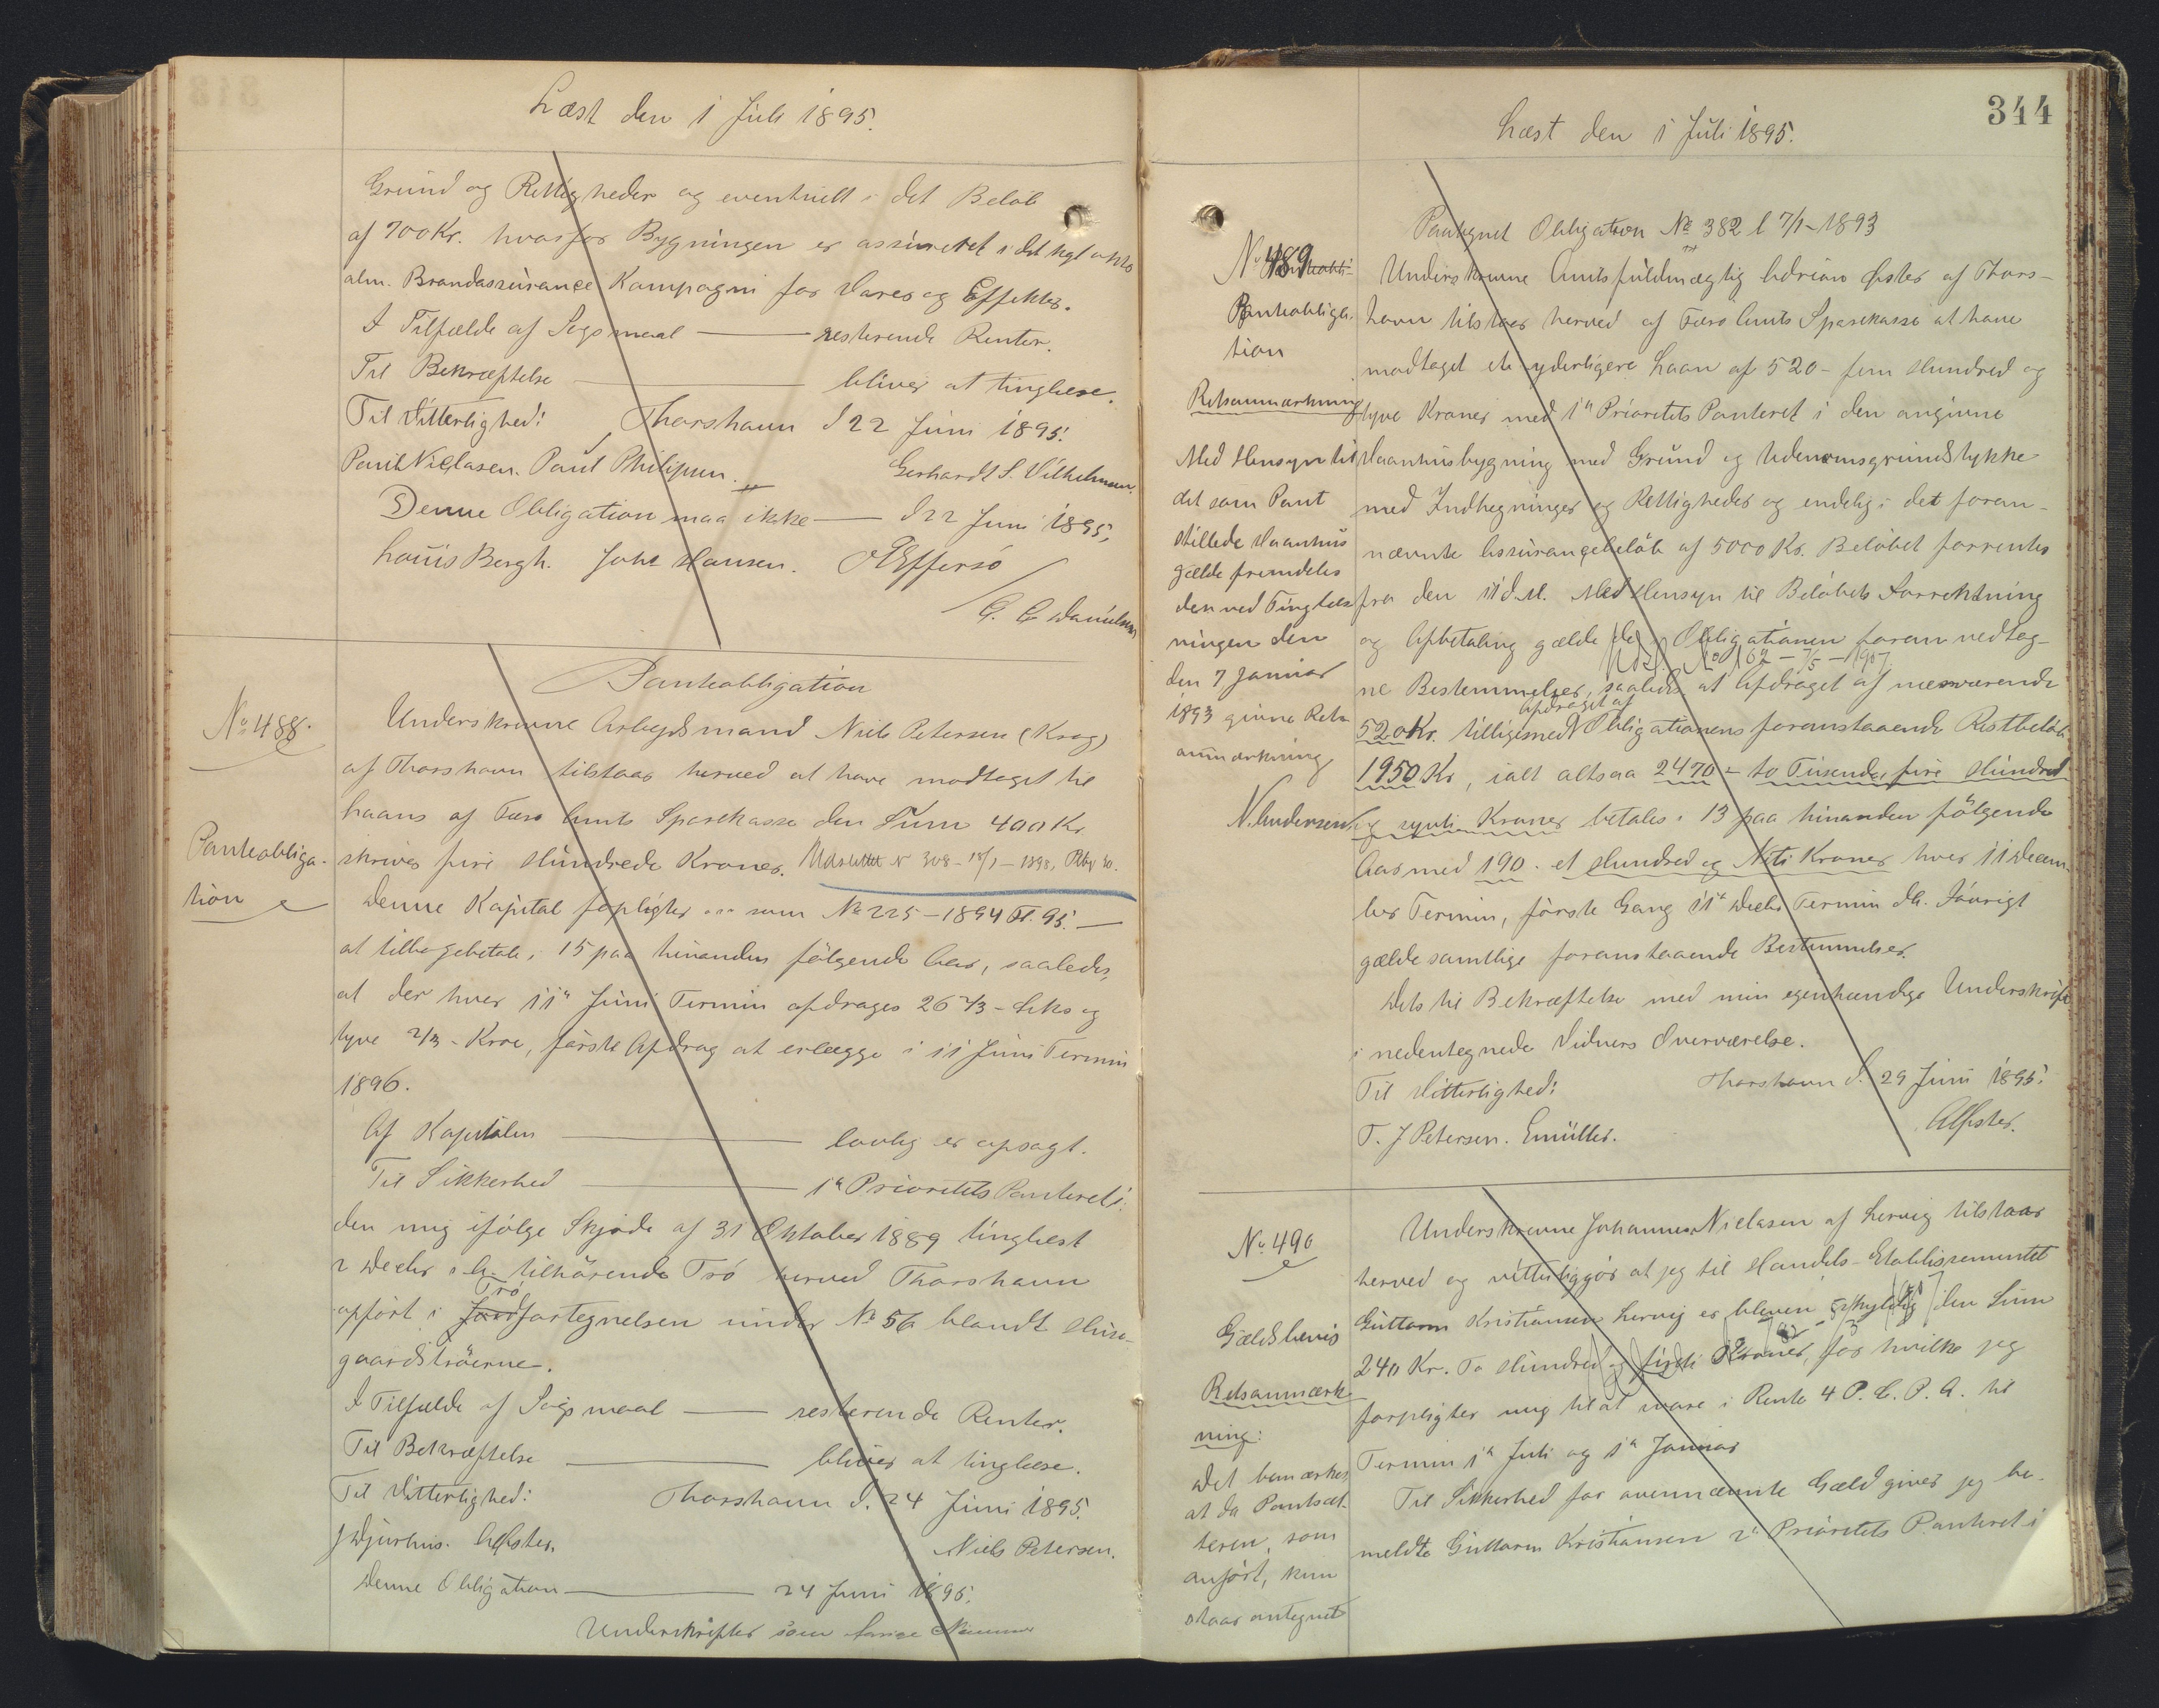 Læst den 1 Juli 1895.
Grund og Rettigheder og eventuelt i det Beløb
af 700 Kr. hvorfor Bygningen er assureret i det kgl oktr
alm. Brandassurance Kompagni for Varer og Effekter.
I Tilfælde af Segsmaal — resterende Renter.
Til Bekræftelse — bliver at tinglæse.
Til Vitterlighed: Thorshavn d 22 Juni 1895.
Poul Nielasen. Poul Philipsen. Gerhardt S. Vilhelmsen.
Denne Obligation maa ikke — d 22 Juni 1895,
Louis Bergh. Johs Hansen. Effersö
/ G. C. Danielsen
No 488.
Pantobliga-
tion
Pantobligation
Underskrevne Arbejdsmand Niels Petersen (Krag)
af Thorshavn tilstaar herved at have modtaget til
Laans af Færø Amts Sparekasse den Sum 400 Kr
skriver fire Hundrede Kroner. Udslettet No 308 - 18/1 - 1898,
Denne Kapital forpligter som No 225 - 1894 Fl. 95. —
at tilbagebetale i 15 paa hinanden følgende Aar, saaledes,
at der hver 11te Juni Termin afdrages 26 2/3 - Seks og
tyve 2/3 - Kroner, første Afdrag at erlægge i 11 Juni Termin
1896.
Af Kapitalen — lovlig er opsagt.
Til Sikkerhed — 1ste Prioritets Panteret i
den mig ifølge Skjøde af 31 Oktober 1889 tinglæst
2 Decbr s. A. tilhørende Trø herved Thorshavn
Trø
opført i Jordfortegnelsen under No 56 blandt Huse-
gaardstrøerne.
I Tilfælde af Segsmaal — resterende Renter.
Til Bekræftelse — bliver at tinglæse.
Til Vitterlighed: Thorshavn d. 24 Juni 1895.
J Djurhus. A Øster. Niels Petersen.
Denne Obligation — 24 Juni 1895.
Underskrifter som forrige Nummer
344
Læst den 1 Juli 1895.
No 489
Pantobliga-
tion
Retsanmærkning
Med Hensyn til
det som Pant
stillede Vaanhus
gælde fremdeles
den ved Tinglæs-
ningen den
den 7 Januar
1893 givne Rets-
anmærkning
N. Andersen
Paategnet Obligation No 382 l 7/1 - 1893
Underskrevne Amtsfuldmægtig Adrian Øster af Thors-
havn tilstaar herved af Færø Amts Sparekasse at have
modtaget et yderligere Laan af 520 - fem Hundred og
tyve Kroner med 1ste Prioritets Panteret i den angivne
Vaanhusbygning med Grund og Udenomsgrundstykke
med Indhegninger og Rettigheder og endelig i det foran-
nævnte Assurancebeløb af 5000 Kr. Beløbet forrentes
fra den 11 d. M. Med Hensyn til Beløbets Forrentning
og Afbetaling gælde de i Obligationen foran vedtag-
Udsl. No 162 - 7/5 - 1907
ne Bestemmelser, saaledes at Afdraget af nærværende
afdraget af
520 Kr. tilligemed Obligationens foranstaaende Restbeløb
1950 Kr, ialt altsaa 2470 - to Tusende, fire Hundred
og syvti Kroner betales i 13 paa hinanden følgende
Aar med 190 - et Hundred og Niti Kroner hver 11 Decem-
ber Termin, første Gang 11te Decbr Termin d A. Iøvrigt
gælde samtlige foranstaaende Bestemmelser.
Dets til Bekræftelse med min egenhændige Underskrift
i nedentegnede Vidners Overværelse.
Til Vitterlighed: Thorshavn d. 29 Juni 1895.
T. J Petersen. Emüller. AØster.
No 490
Gældsbevis
Retsanmærk-
ning:
Det bemærkes
at da Pantsæt-
teren, som
anført, kun
staar antegnet
Underskrevne Johannes Nielasen af Lervig tilstaar
herved og vitterliggør at jeg til Handels-Etablissementet
Guttorm Kristiansen Lervig er bleven skyldig den Sum
240 Kr. To Hundred og firti Kroner, for hvilke jeg
forpligter mig til at svare i Rente 4 P. C. P. A. til
Termin 1ste Juli og 1ste Januar
Til Sikkerhed for ovennævnte Gæld giver jeg be-
meldte Guttorm Kristiansen 2den Prioritets Panteret i